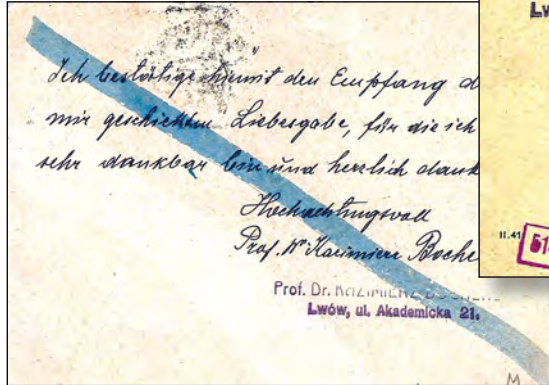 Ich bestätige hiermit den Empfang d
mir geschickten Liebesgabe, für die ich
sehr dankbar bin und herzlich dank
Hochachtungsvoll
Prof. Dr Kazimierz Boche
Prof. Dr. KAZIMIERZ
Lwów, ul. Akademicka 21.
M
Lw
II.41
51